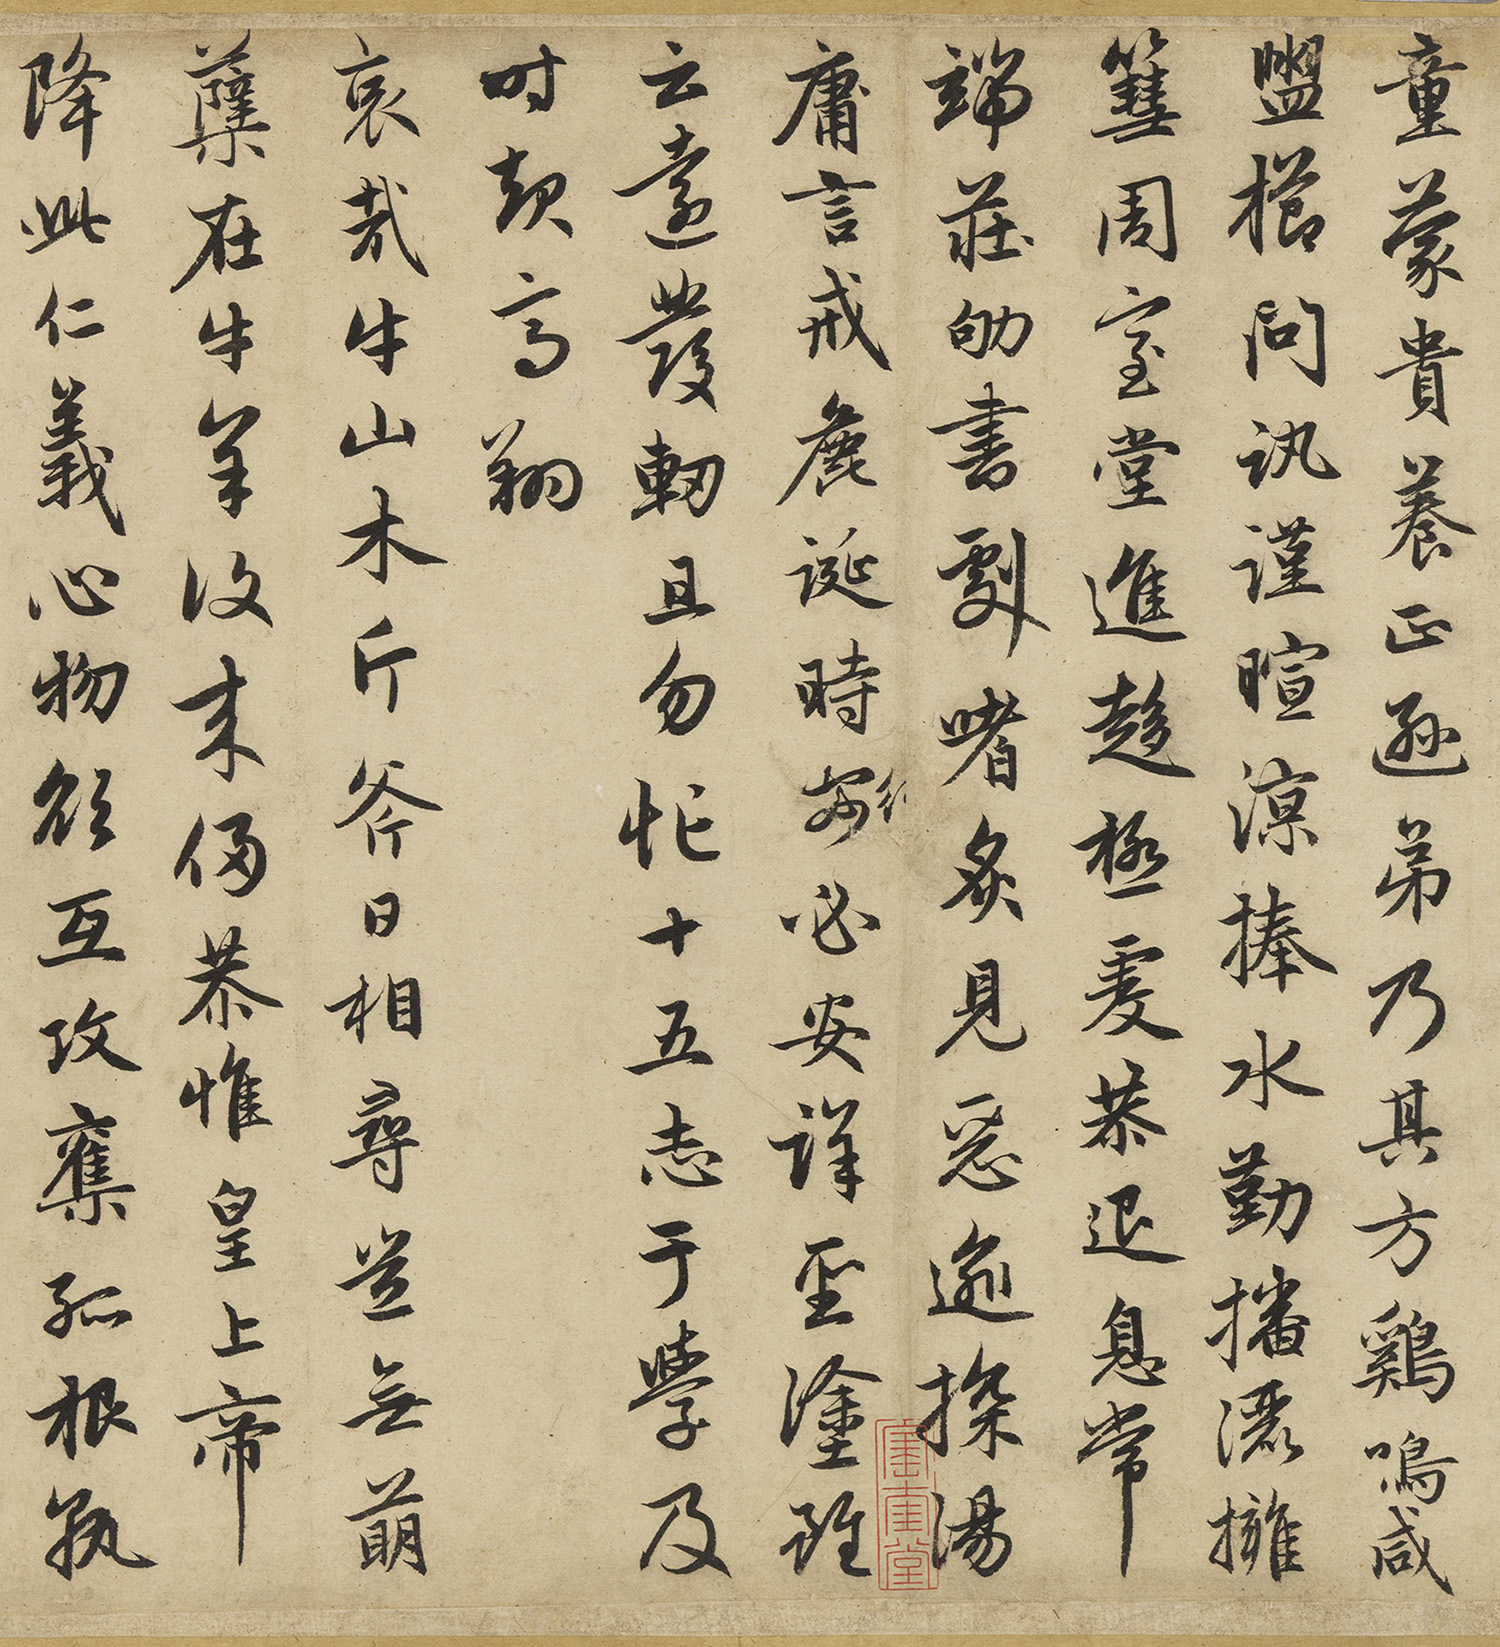 童蒙貴養正遜弟乃其方鷄鳴咸
盥櫛問訊謹暄涼捧水勤播灑擁
篲周室堂進趨極虔恭退息常
端莊劬書劇嗜炙見惡逾探湯
庸言戒麁誕時行必安詳聖塗雖
云遠發軔且勿忙十五志于學及
時起高翔
哀哉牛山木斤斧日相尋豈無萌
蘖在牛羊復来侵恭惟皇上帝
降此仁義心物欲互攻奪孤根孰